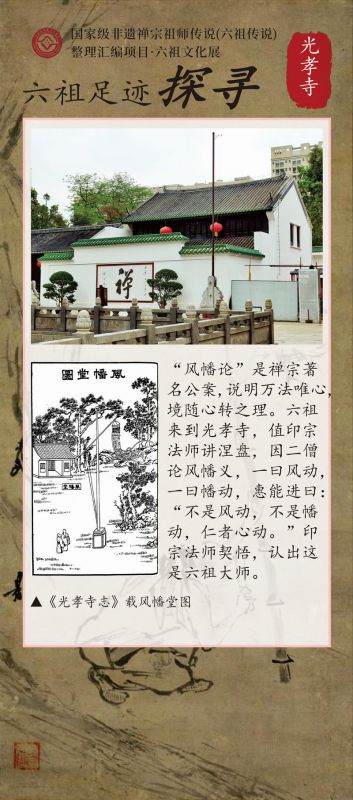 国家级非遗禅宗祖师传说(六祖传说)
整理汇编项目·六祖文化展
六祖足迹探寻
光孝寺
禅
圖堂幡風
風幡堂
“风幡论”是禅宗著
名公案,说明万法唯心,
境随心转之理。六祖
来到光孝寺，值印宗
法师讲涅盘，因二僧
论风幡义，一曰风动，
一曰幡动，惠能进曰：
“不是风动，不是幡
动，仁者心动。”印
宗法师契悟，认出这
是六祖大师。
▲《光孝寺志》载风幡堂图